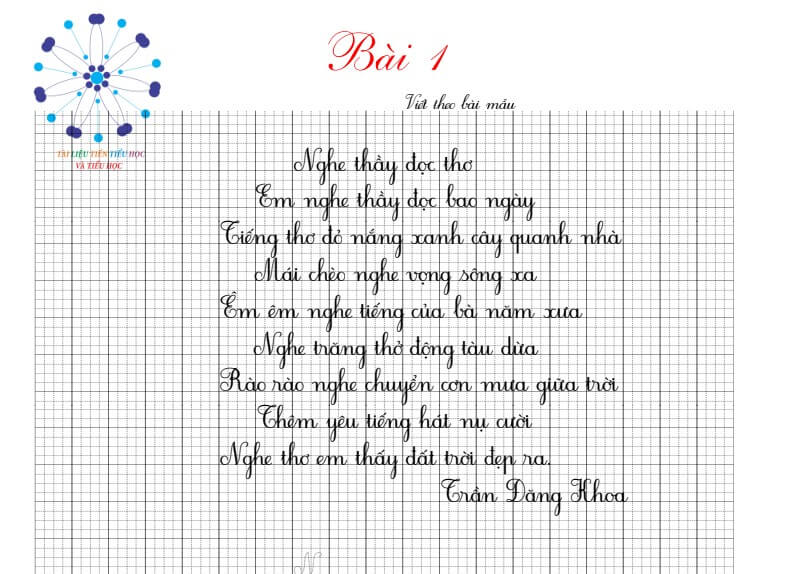 Bài 1
Viết theo bài mẫu
TÀI LIỆU TIỀN TIỂU HỌC
VÀ TIỂU HỌC
Nghe thầy đọc thơ
Em nghe thầy đọc bao ngày
Tiếng thơ đỏ nắng xanh cây quanh nhà
Mái chèo nghe vọng sông xa
Êm êm nghe tiếng của bà năm xưa
Nghe trăng thở động tàu dừa
Rào rào nghe chuyển cơn mưa giữa trời
Thêm yêu tiếng hát nụ cười
Nghe thơ em thấy đất trời đẹp ra.
Trần Đăng Khoa
N